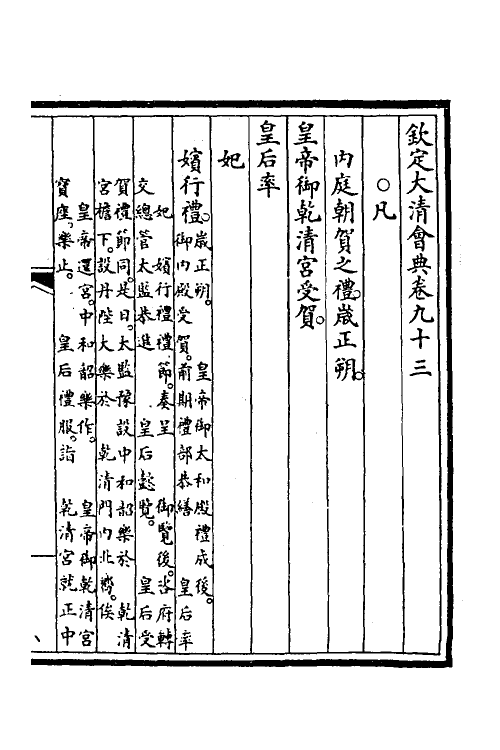 欽定大清會典卷九十三
○凡
內庭朝賀之禮。歲正朔。
皇帝御乾清宮受賀。
皇后率
妃
嬪行禮。
歲正朔。 皇帝御太和殿禮成後。
御內殿受賀。前期禮部恭繕 皇后率
妃 嬪行禮禮節。奏呈 御覽後。咨府轉
交總管太監恭進 皇后懿覽。 皇后受
賀禮節同。是日。太監豫設中和韶樂於 乾清
宮檐下。設丹陛大樂於 乾清門內北嚮。俟
皇帝還宮。中和韶樂作。 皇帝御乾清宮
寶座。樂止。 皇后禮服。詣 乾清宮就正中